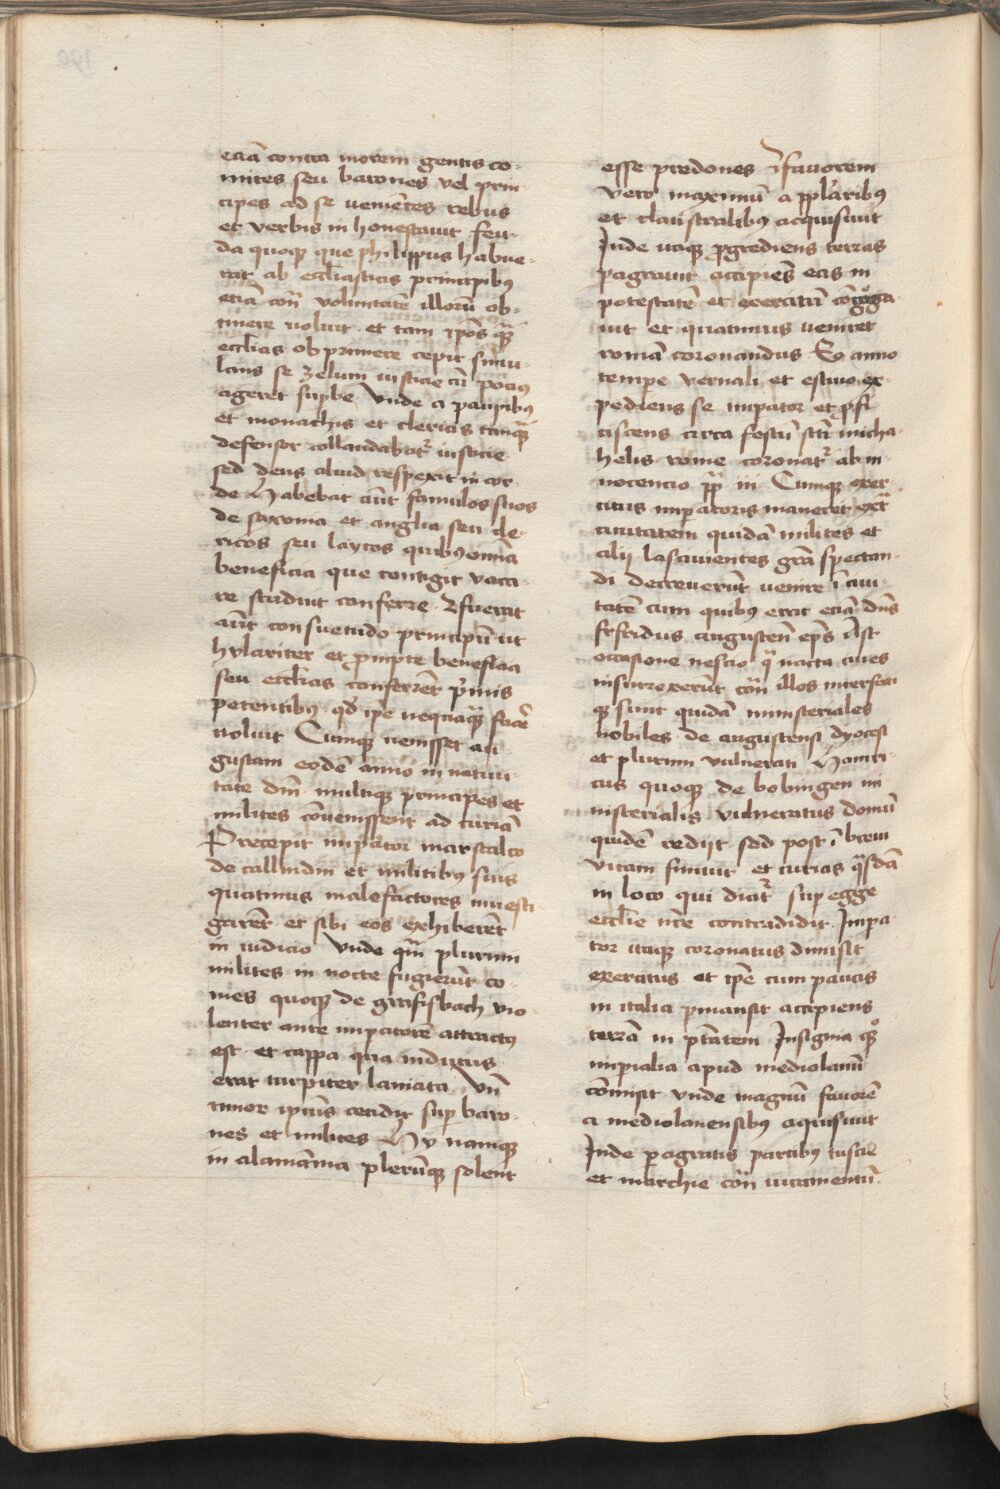 eciã contra morem gentis co-
mites seu barones vel prin-
cipes ad se veniẽtes rebus
et verbis in honestavit feu-
da quoqꝫ que philippus habue-
rat ab ecclĩasticis principibꝰ
eciã cõñ voluntatẽ illorũ ob-
tinere voluit et tam ep̃os qꝫ̃
ecclĩas obprimere cepit simu-
lans se zelum iusticie cũ pociꝰ
ageret supbe vnde a paupibꝰ
et monachis et clericis tanqꝫ̃
defensor collaudabat᷑ iusticie
sed deus aliud respexit in cor-
de Habebat aũt famulos suos
de saxonia et anglia seu cle-
ricos seu laycos quibꝰ omĩa
beneficia que contigit vaca-
re studuit conferre ꝯfuerat
aũt consuetudo principũ ut
hylariter et ꝓmpte beneficia
seu ecclĩas conferrẽt p̃mis
petentibꝰ qđ ip̃e nequaqꝫ̃ facẽ
voluit Cumqꝫ venisset au-
gustam eodẽ anno in nativi-
tate dñi multiqꝫ principes et
milites cõvenissent ad curiã
Precepit imp̃ator marscalco
de callindin et militibꝰ suis
quatinus malefactores investi
garẽt et sibi eos exhiberẽt
in iudicio Vnde qm̃ plurimi
milites in nocte fugierũt co-
mes quoqꝫ de graifisbach vio-
lenter ante imp̃atorẽ attractꝰ
est et cappa qua indutus
erat turpiter laniata vñ
timor ip̃ius cecidit sup baro-
nes et milites Hy namqꝫ
in alamãnia plerũqꝫ solent
esse predones ꝯ favorem
vero maximũ a pp̃laribꝰ
et claustralibꝰ acquisivit
Inde itaqꝫ ꝓgrediens terras
pagravit accipiẽs eas in
potestatẽ et exercitũ cõgrega
vit et quatinus veniret
romã coronandus Eo anno
tempe vernali et estivo ex-
pediens se imp̃ator et ꝓfi
ciscens circa festũ sc̃ti micha-
helis rome coronat᷑ ab in-
nocencio pp̃ iii Cumqꝫ exer-
citus imp̃atoris maneret ext̃
civitatem quidã milites et
alii lascivientes grã spectan-
di decreverũt venire ĩ civi-
tatẽ cum quibꝰ erat eciã dñs
sifridus augusteñ ep̃s
occasione nescio qª nacta cives
insurrexerũt cõñ illos interfecti
qꝫ sunt quidã ministeriales
nobiles de augustensi dyocesi
et plurimi vulnerati Hainri-
cus quoqꝫ de bobingen mi
nisterialis vulneratus domũ
quidẽ redijt sed post ĩ brevi
vitam finivit et curias qªsdã
in loco qui dicit᷑ sup egge
ecclĩe nr̃e contradidit Imp̃a
tor itaqꝫ coronatus dimisit
exercitus et ip̃e cum paucis
in italia pmansit accipiens
terrã in p̃tatem Insignia qꝫꝫ
imp̃ialia apud mediolanũ
cõmisit vnde magnũ favorẽ
a mediolanensibꝰ aquisivit
Inde pagratis partibꝰ tuscie
et marchie cõñ iuramentũ